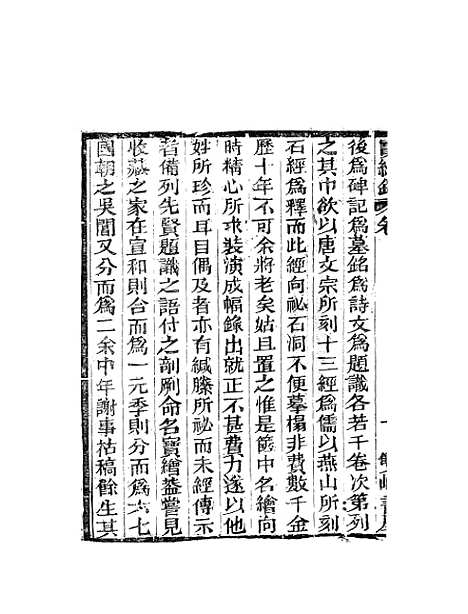 後爲碑記爲墓銘爲詩文爲題識各若千卷次第列
之其中欲以唐文宗所刻十三經爲儒以燕山所刻
石經爲釋而此經向祕石洞不便摹搨非費數千金
歷十年不可余將老矣姑且置之惟是篋中名繪向
時精心所求裝演成幅錄出就正不甚費力遂以他
姓所珍而耳目偶及者亦有緘縢所祕而未經傳示
者備列先賢題識之語付之剞劂命名寶繪葢嘗見
收藏之家在宣和則合而爲一元季則分而爲六七
國朝之吳閶又分而爲二余中年謝事枯稿餘生其